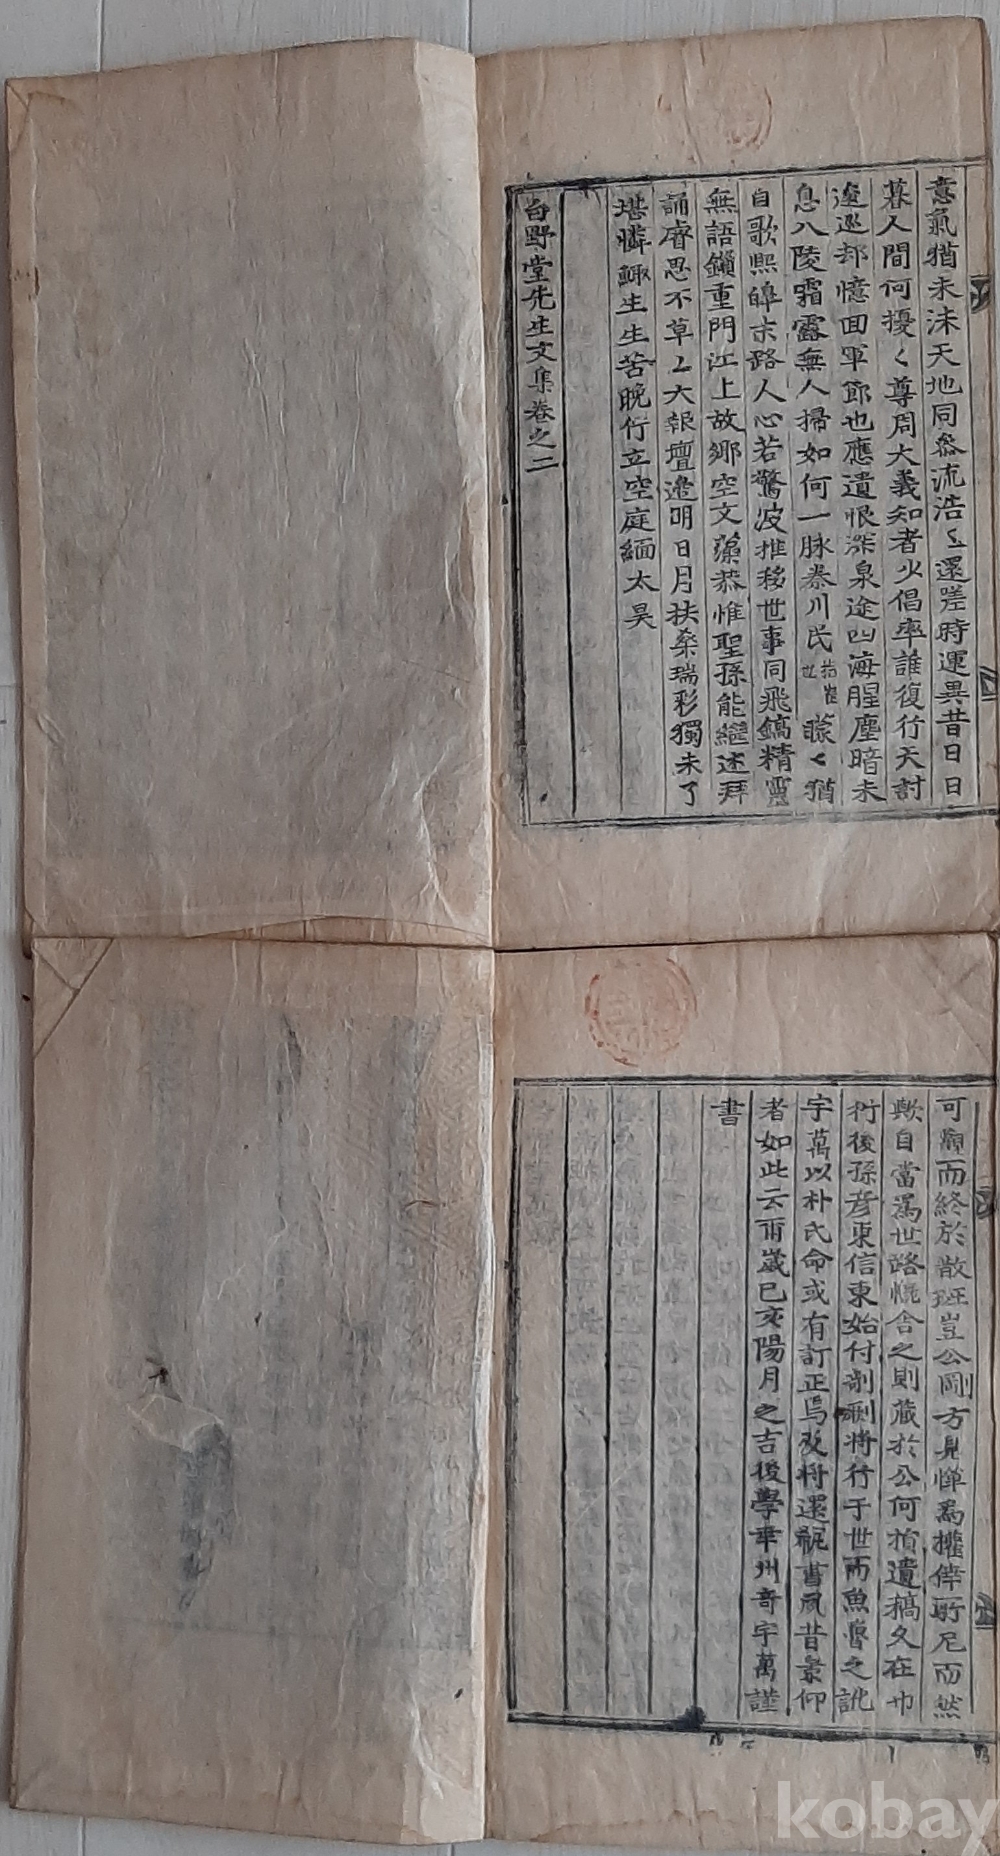 意氣猶未沫天地同叅流浩〻還嗟時運異昔日日
暮人間何擾〻尊周大義知者少倡率誰復行天討
逡巡却憶回軍節也應遺恨深泉途凹海腥塵暗未
息八陵霜露無人掃如何一脉泰川民 矇〻猶
自歌熙皥末路人心若驚波推移世事同飛鎬精靈
無語鎖重門江上故鄉空文藻恭惟聖孫能繼述拜
誦睿思不草〻大報壇邉明日月扶桑瑞彩獨未了
堪憐鯫生生苦晚佇立空庭緬太昊
白野堂先生文集卷之二
可觀而終於散班豈公剛方見憚爲權倖所尼而然
歟自當爲世路慨舍之則藏於公何損遺稿久在巾
衍後孫彦東信東始付剞劂將行于世而魚魯之訛
宇萬以朴氏命或有訂正焉及將還瓻書夙昔景仰
者如此云爾歲己亥陽月之吉後學幸州奇宇萬謹
書
kobay